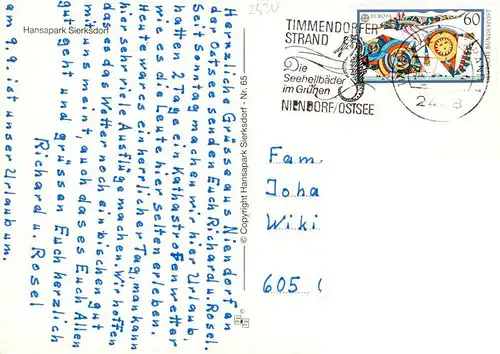 Hansapark Sierksdorf
Herzliche Grüsse aus Niendorf an
der Ostsee senden Euch Richard u. Rosel.
Seit sonntag machen wir hier Urlaub,
hatten 2 Tage ein Kathastrofenwetter
wie es die Leute hier selten erleben.
Heute wares ein herrlicher Tag, man kann
hier sehr viele Ausflüge machen. Wir hoffen
dases das Wetter noch ein bischen gut
mit uns meint, auch das es Euch Allen
gut geht und grüssen Euch herzlich
Richard u. Rosel
am 9.9. ist unser Urlaub um.
© Copyright Hansapark Sierksdorf - Nr. 65
TIMMENDORFER
STRAND
Die
Seeheilbäder
im Grünen
NIENDORF/OSTSEE
EUROPA
60
DEUTSCHE BUNDESPOST
Fam
Joha
Wiki
605